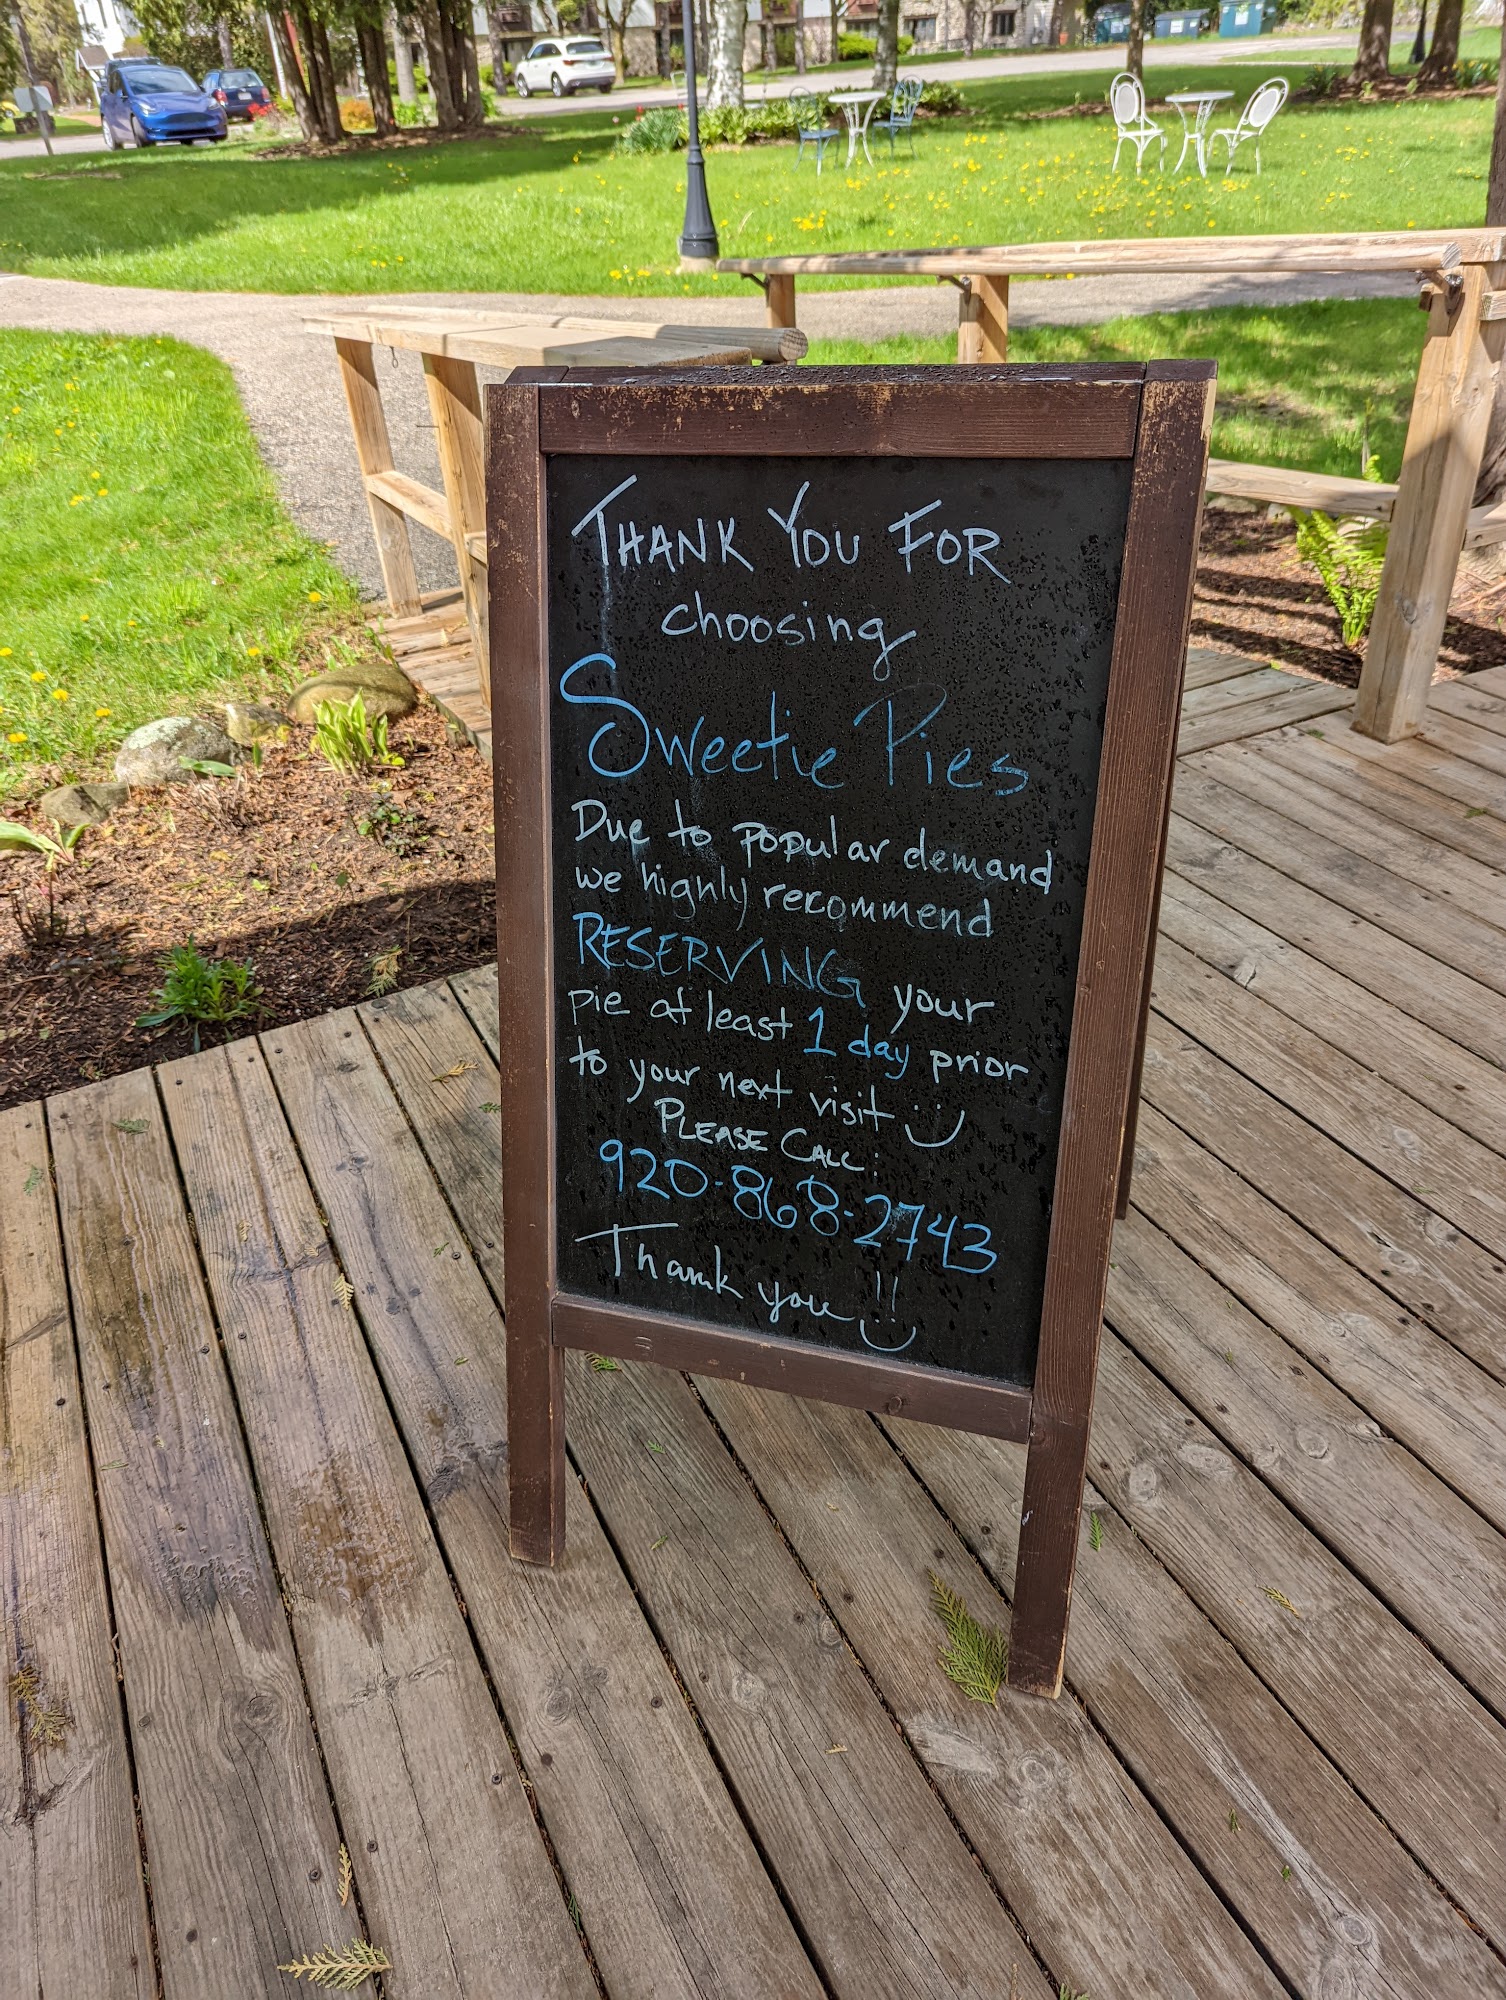 THANK YOU FOR
choosing
Sweetie Pies
Due to popular demand
we highly recommend
RESERVING your
pie at least 1 day prior
to your next visit
PLEASE CALL:
920-868-2743
Thank you!!